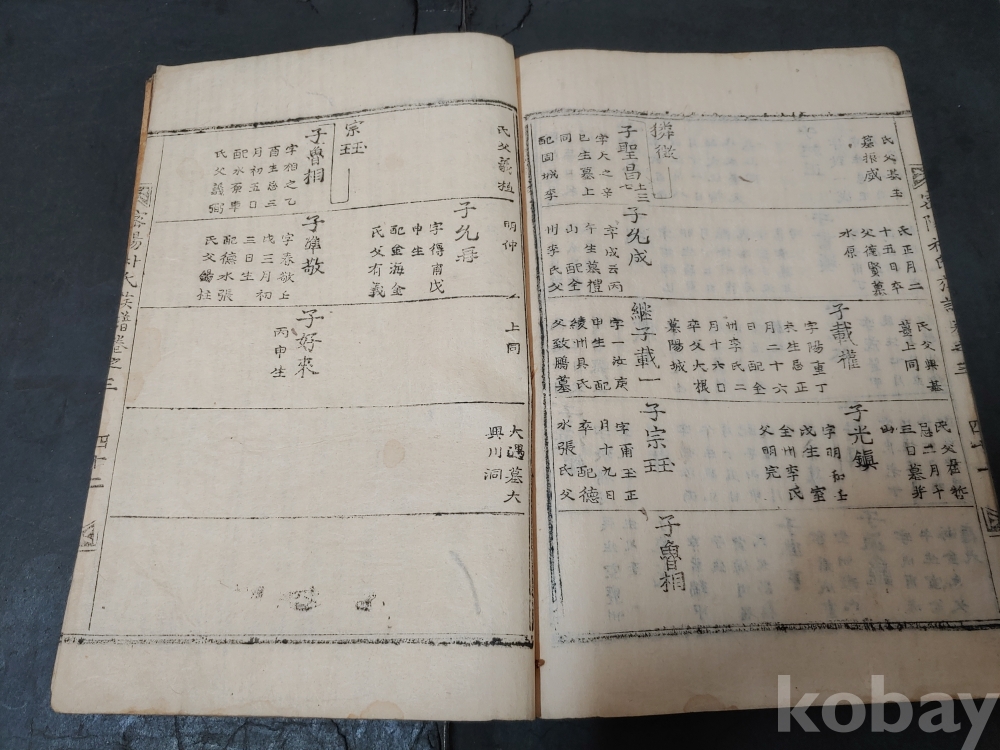 氏父基玉
墓振威
子聖昌
七上三
字大之辛
巳生墓上
同
配固城李
氏正月二
十五日卒
父德賢墓
水原
子允成
字成云丙
午生墓禮
山配全
川李氏父
氏父興基
墓上同
子載權
字陽重丁
月二十六
日配全
州李氏二
月十六日
卒父大根
墓陽城
継子載一
字一汝庚
申生配
綾州具氏
父致鵬墓
三日墓井
山
子光鎭
戊生室
全州李氏
父明完
子宗玨
字甭玉正
月十九日
卒配德
水張氏父
子魯相
氏父義植
宗玨
子魯相
字相之乙
酉生忌三
月初五日
氏父義弼
明仲
子允再
字得甯戊
申生
配金海金
氏父有義
字春敬上
戊三月初
三日生
配德水張
氏父鐘柱
上同
子好來
丙申生
大遇墓大
興川洞
族譜卷之三
四十二
kobay